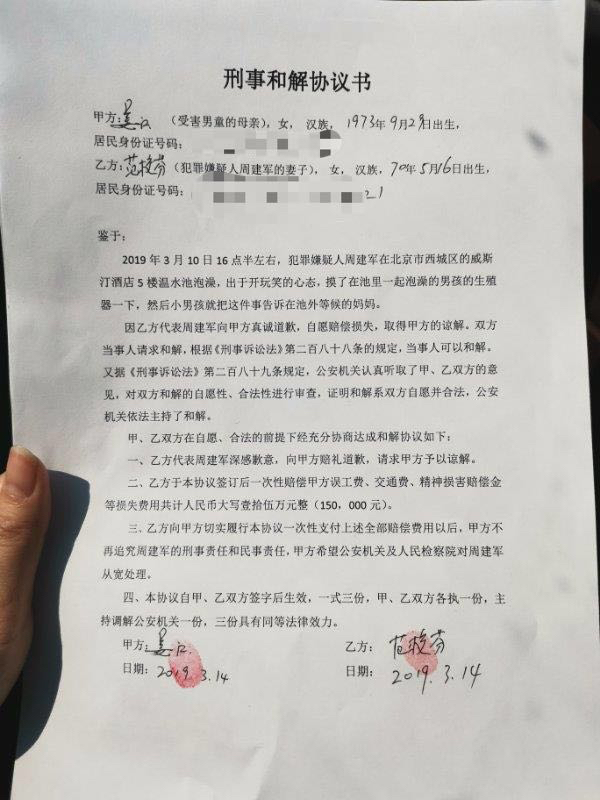 刑事和解协议书
甲方: （受害男童的母亲），女， 汉族， 1973年9月29日出生，
居民身份证号码：
乙方: 范枝芬 （犯罪嫌疑人周建军的妻子），女，汉族，70年5月16日出生，
居民身份证号码: 21
鉴于：
2019 年 3 月 10 日 16 点半左右，犯罪嫌疑人周建军在北京市西城区的威斯
汀酒店 5 楼温水池泡澡，出于开玩笑的心态，摸了在池里一起泡澡的男孩的生殖
器一下，然后小男孩就把这件事告诉在池外等候的妈妈。
因乙方代表周建军向甲方真诚道歉，自愿赔偿损失，取得甲方的谅解。双方
当事人请求和解，根据《刑事诉讼法》第二百八十八条的规定，当事人可以和解。
又据《刑事诉讼法》第二百八十九条规定，公安机关认真听取了甲、乙双方的意
见，对双方和解的自愿性、合法性进行审查，证明和解系双方自愿并合法，公安
机关依法主持了和解。
甲、乙双方在自愿、合法的前提下经充分协商达成和解协议如下：
一、乙方代表周建军深感歉意，向甲方赔礼道歉，请求甲方予以谅解。
二、乙方于本协议签订后一次性赔偿甲方误工费、交通费、精神损害赔偿金
等损失费用共计人民币大写壹拾伍万元整（150，000 元）。
三、乙方向甲方切实履行本协议一次性支付上述全部赔偿费用以后，甲方不
再追究周建军的刑事责任和民事责任，甲方希望公安机关及人民检察院对周建军
从宽处理。
四、本协议自甲、乙双方签字后生效，一式三份，甲、乙双方各执一份，主
持调解公安机关一份，三份具有同等法律效力。
甲方: 乙方: 范枝芬
日期: 2019.3.14 日期: 2019.3.14